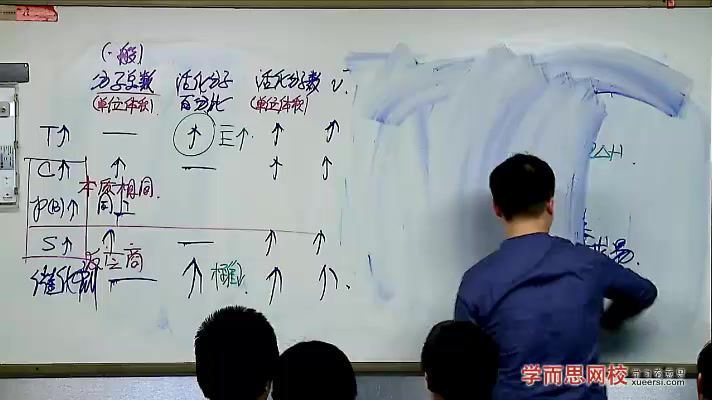 (一般)
分子总数 活化分子 活化分子数 v
(单位体积) 百分比 (单位体积)
T↑ — ↑ E↑ ↑ ↑
C↑ ↑ — ↑ ↑
本质相同
P(B)↑ 同上
S↑ ↑ — ↑ ↑
催化剂 — ↑ ↑ ↑
△H
易.
学而思网校
xueersi.com